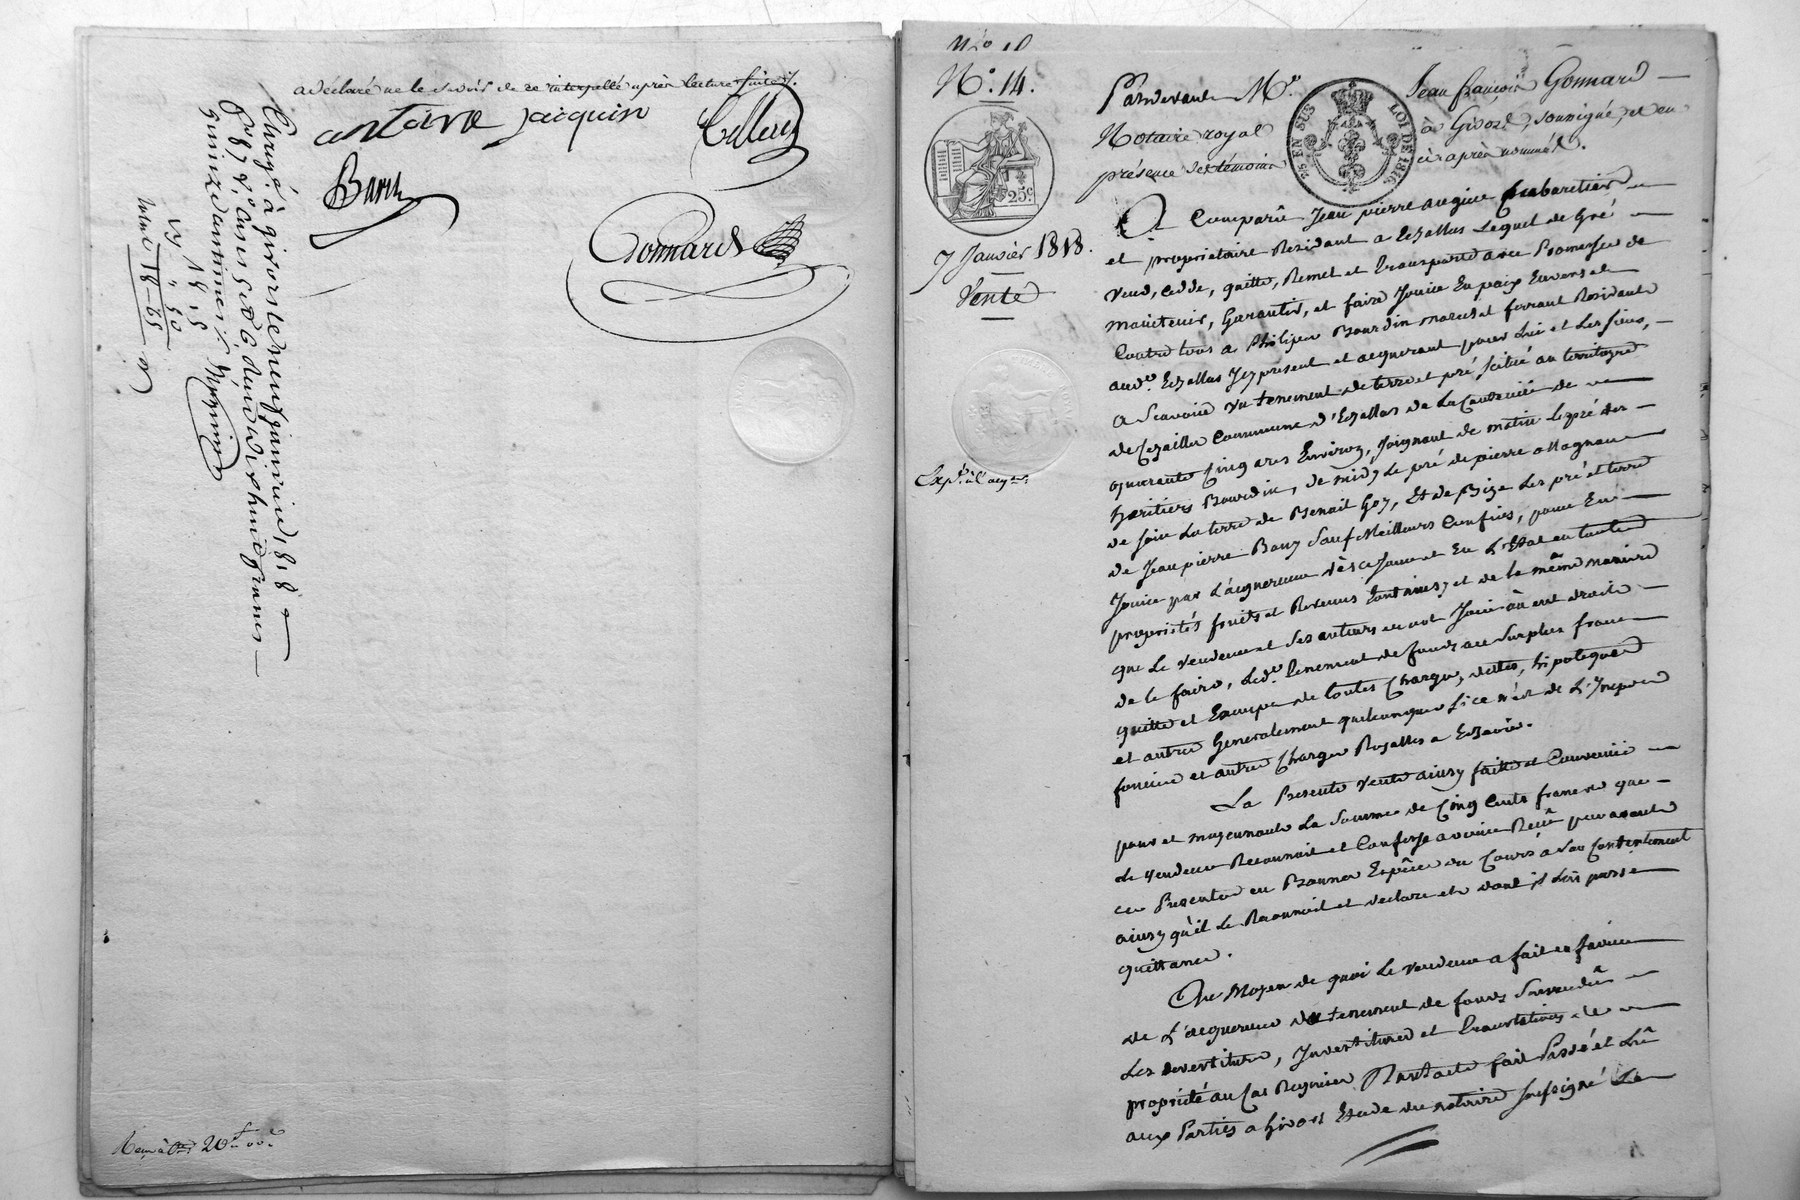 a déclaré ne le savoir de ce interpellé après lecture faite /.
antoine jacquin
Gonnard
Enregé. à givors le neuf janvier 1818
fo. 87 vo. cases 5 et 6 Reçu dix huit francs
quinze centimes
18-65
20 f. 00 c
No. 14.
25 c.
7 Janvier 1818.
Vente
Expn. à l'acqr.
EN SUS
LOI DE 1816
Pardevant Me. Jean françois Gonnard
Notaire royal à Givors, soussigné, et en
présence des témoins ci après nommés.
A Comparû Jean pierre augier Cabaretier
et propriétaire Residant a Echallas Lequel de Gré
Vend, Cedde, quitte, Remet et transporte avec Promesse de
maintenir, Garantir, et faire Jouir En paix Envers et
Contre tous a Philipe Bourdin marechal ferrant Residant
aud. Echallas Icy present et acquerant pour Lui et Les siens,
a Scavoir un tenement de terre et pré scitué au territoire
de Commune d'Echallas de La Contenue de
quarante Cinq ares Environ, Joignant de matin Le pré des
héritiers Bourdin, de midy Le pré de pierre Magnan
de soir La terre de Benoit Gey, Et de Bize Les pré et terre
de Jean pierre Bony Sauf Meilleurs Confins, pour En
Jouir par L'acquereur dès ce Jour et En L'Etat en toute
propriétés fruits et Revenus Contenus, et de la même maniere
que Le vendeur et Ses auteurs en ont Joui où eut droit
de le faire, Led. tenement de fonds au Surplus franc
quitte et Exempt de toutes Charges, dettes, hipoteques
et autres Generalement quelconques Si ce n'est de L'Impot
foncier et autres Charges Royalles a Echoir.
La Presente Vente ainsy faitte et Convenue
pour et moyennant La Somme de Cinq Cents francs que
Le vendeur Reconnait et Confesse avoir Reçû par avant
ces Presentes en Bonnes Espêces du Cours à Son Contentement
ainsy qu'il Le Reconnait et declare et dont il Lui passe
quittance.
Au Moyen de quoi Le vendeur a fait en faveur
de L'acquereur du tenement de fonds Susvendû
Les devestiture, Investitures et translations de
propriété au Cas Requises Dont acte fait Passé et Lû
aux Parties a Givors Etude du notaire Soussigné Le